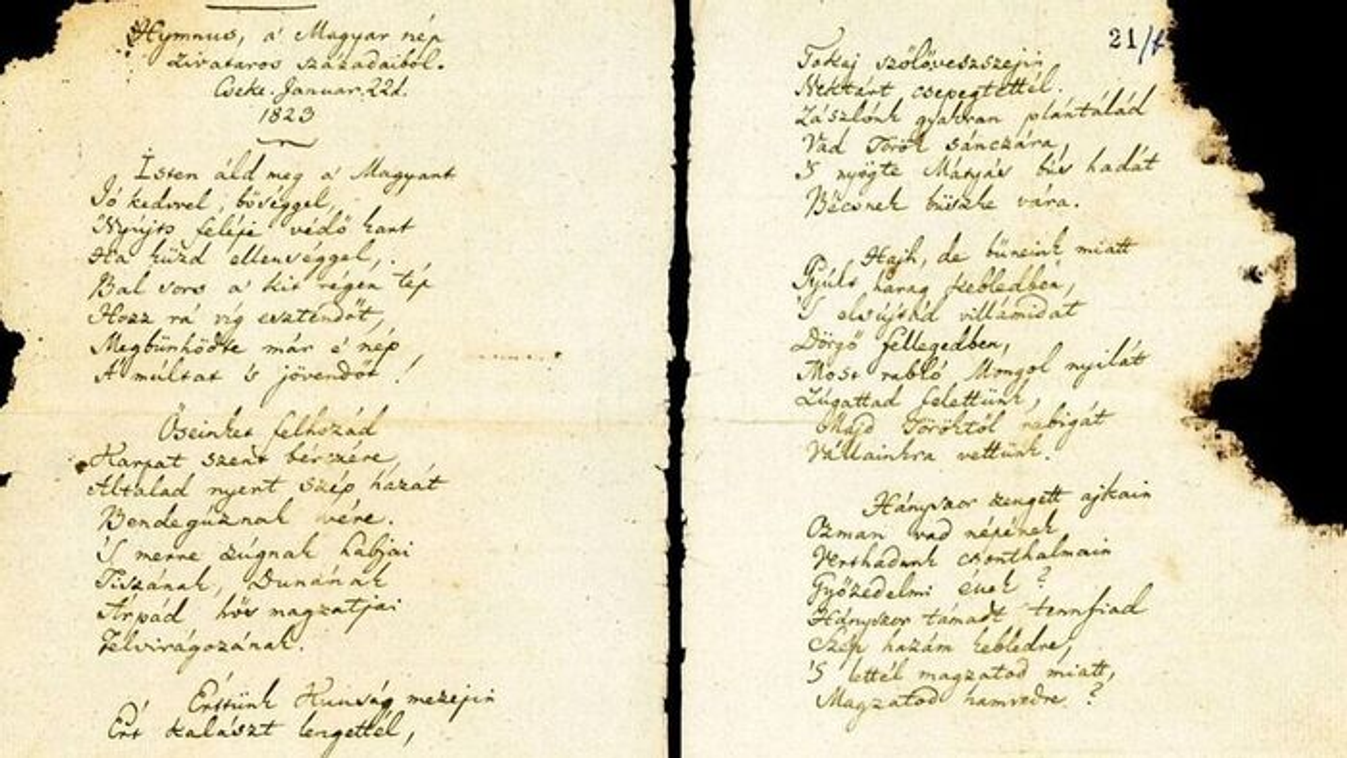 Hymnus, a' Magyar nép
zivataros századaiból.
Cseke. Január. 22d.
1823
Isten áld meg a' Magyart
Jó kedvvel, bőséggel,
Nyújts feléje védő kart
Ha küzd ellenséggel,
Bal sors a' kit régen tép
Hozz rá víg esztendőt,
Megbűnhődte már e' nép
A' múltat 's jövendőt!
Őseinket felhozád
Kárpát szent bérczére
Általad nyert szép hazát
Bendegúznak vére.
'S merre zúgnak habjai
Tiszának, Dunának
Árpád hős magzatjai
Felvirágozának.
Értünk Kunság mezején
Ért kalászt lengettél,
21/
Tokaj szőlővesszejin
Nektárt csepegtettél.
Zászlónk gyakran plántálád
Vad Török sánczára,
'S nyögte Mátyás bús hadát
Bécsnek büszke vára.
Hajh, de bűneink miatt
Gyúlt harag kebledben,
'S elsújtád villámidat
Dörgő fellegedben,
Most rabló Mongol nyilát
Zúgattad felettünk,
Majd Töröktől rabigát
Vállainkra vettünk.
Hányszor zengett ajkain
Ozman vad népének
Vert hadunk csonthalmain
Győzedelmi ének?
Hányszor támadt tennfiad
Szép hazám kebledre,
'S lettél magzatod miatt,
Magzatod hamvedre?